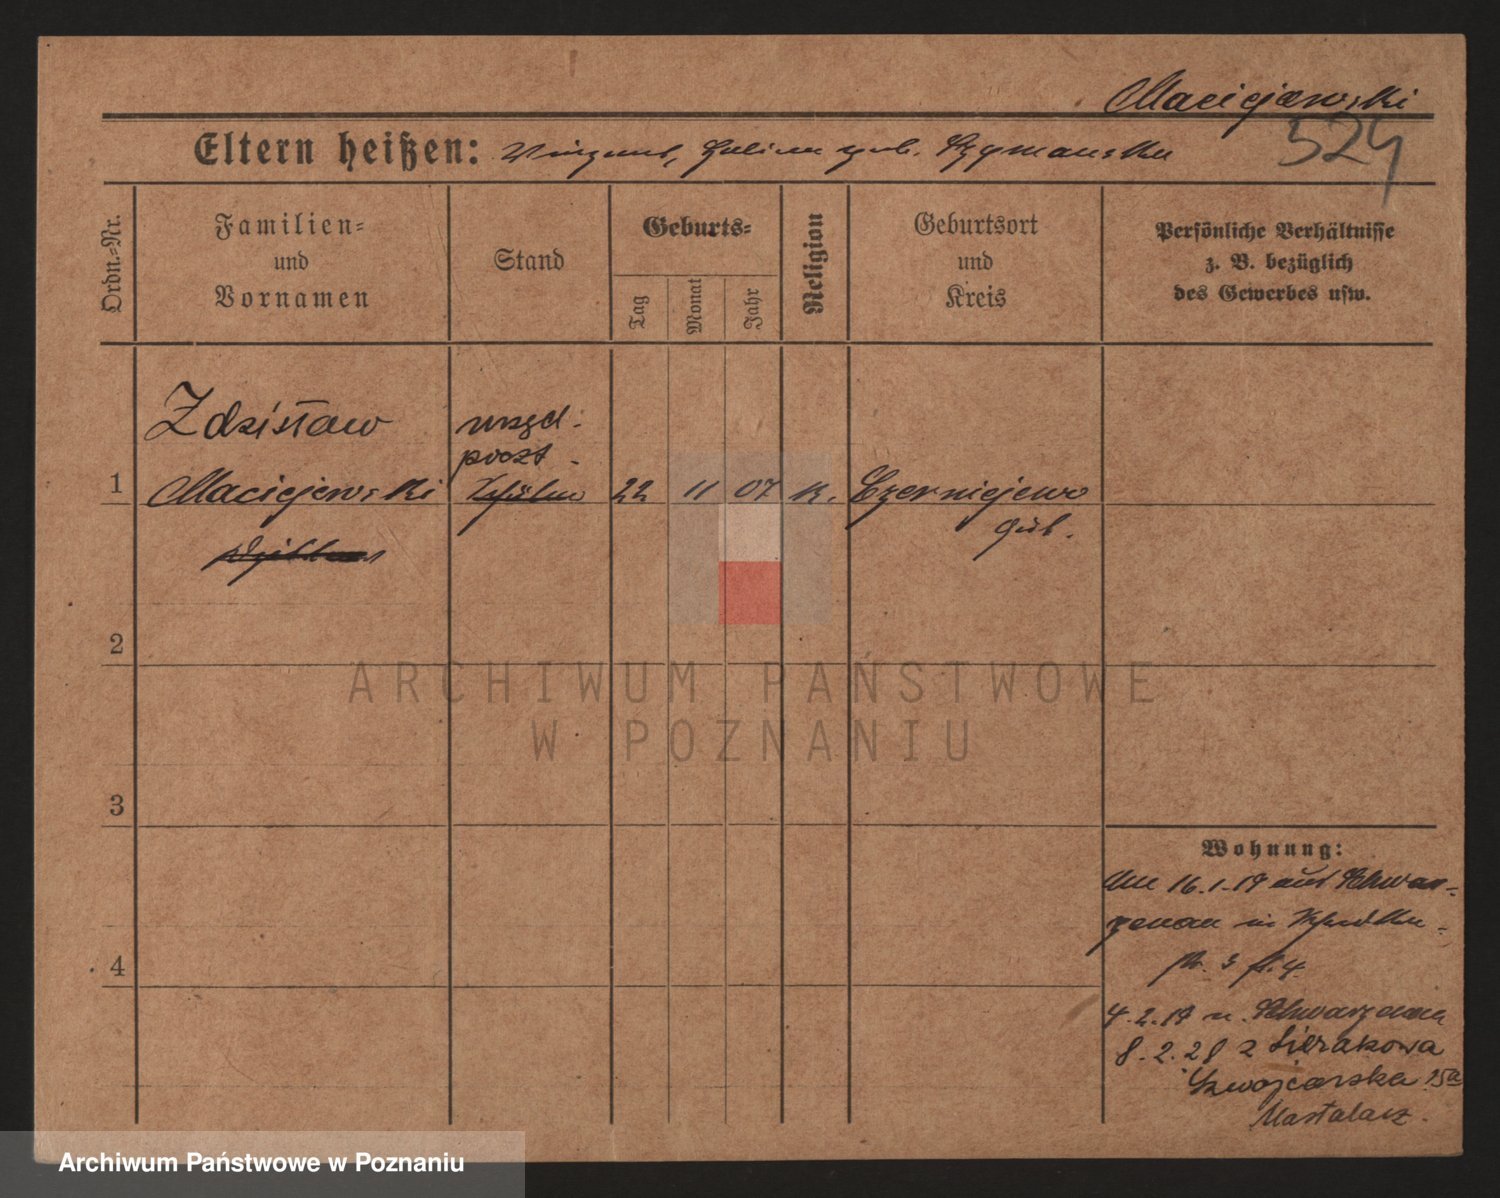 Maciejewski
524
Eltern heißen: geb. Szymanska
Ordn.-Nr.
Familien=
und
Vornamen
Stand
Geburts=
Tag
Monat
Jahr
Religion
Geburtsort
und
Kreis
Persönliche Verhältnisse
z. B. bezüglich
des Gewerbes usw.
Zdzisław
urzęd.
poczt.
1 Maciejewski Schüler 22 11 07 k. Czerniejewo
2
ARCHIWUM PAŃSTWOWE
W POZNANIU
3
Wohnung:
16.1.19 aus Schwar=
zenau in
4
4.2.19 n. Schwarzenau
8.2.28 z Sierakowa
Szwajcarska 15a
Mastalarz.
Archiwum Państwowe w Poznaniu